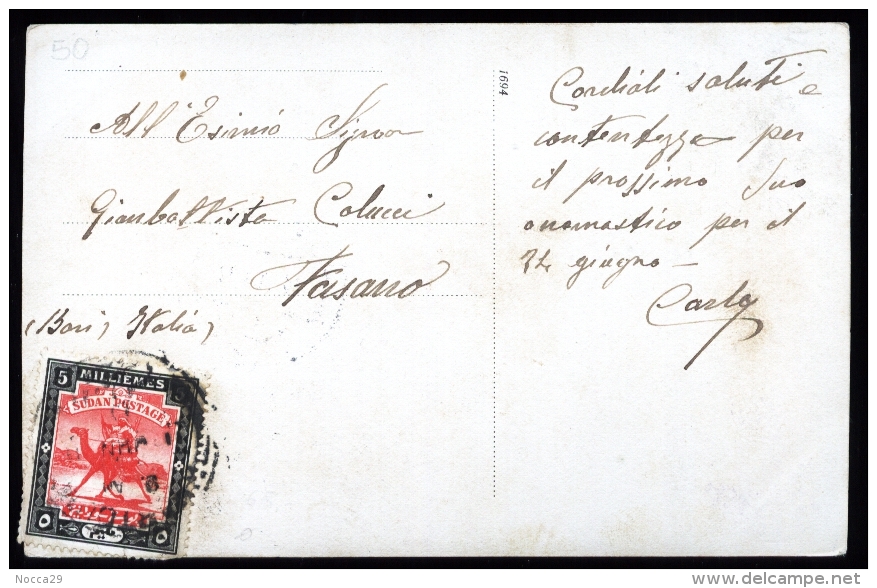 50
All'Esimio Signor
Gianbattista Colucci
Fasano
(Bari, Italia)
1694
Cordiali saluti e
contentezza per
il prossimo Suo
onomastico per il
24 giugno —
Carlo
5 MILLIEMES
SUDAN POSTAGE
JUN
Nocca29
www.delcampe.net